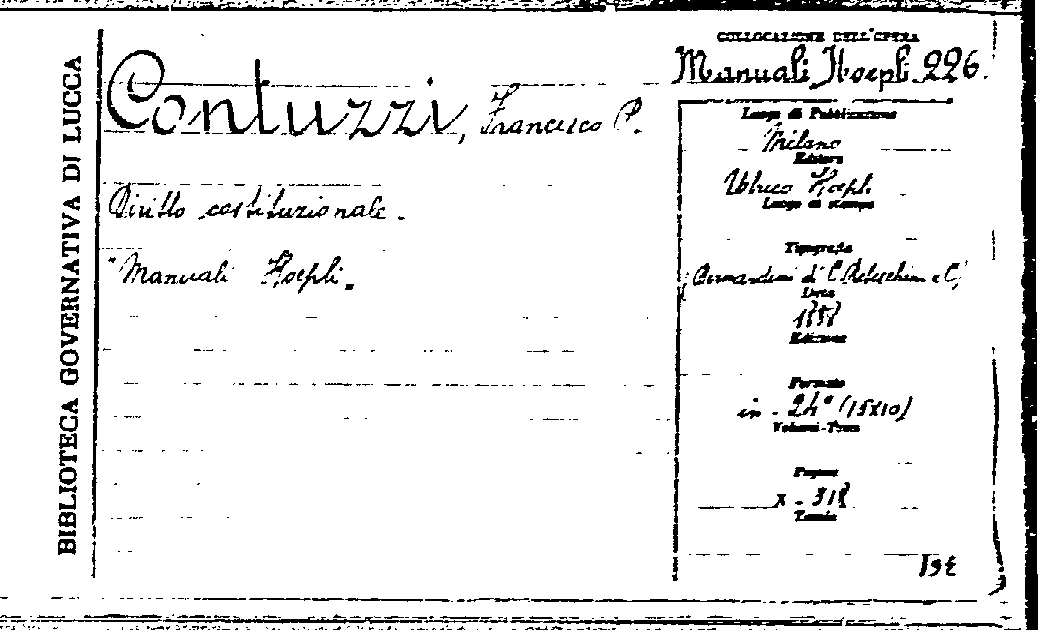 BIBLIOTECA GOVERNATIVA DI LUCCA
Contuzzi, Francesco P.
Diritto costituzionale.
"Manuali Hoepli.
COLLOCAZIONE DELL'OPERA
Manuali Hoepli 226.
Luogo di Pubblicazione
Milano
Editore
Ulrico Hoepli
Luogo di stampa
Tipografia
(Bernardoni di C. Rebeschini e C.)
Data
Edizione
Formato
in - 24° (15x10)
Volumi-Tomi
Pagine
X - 318
Tavole